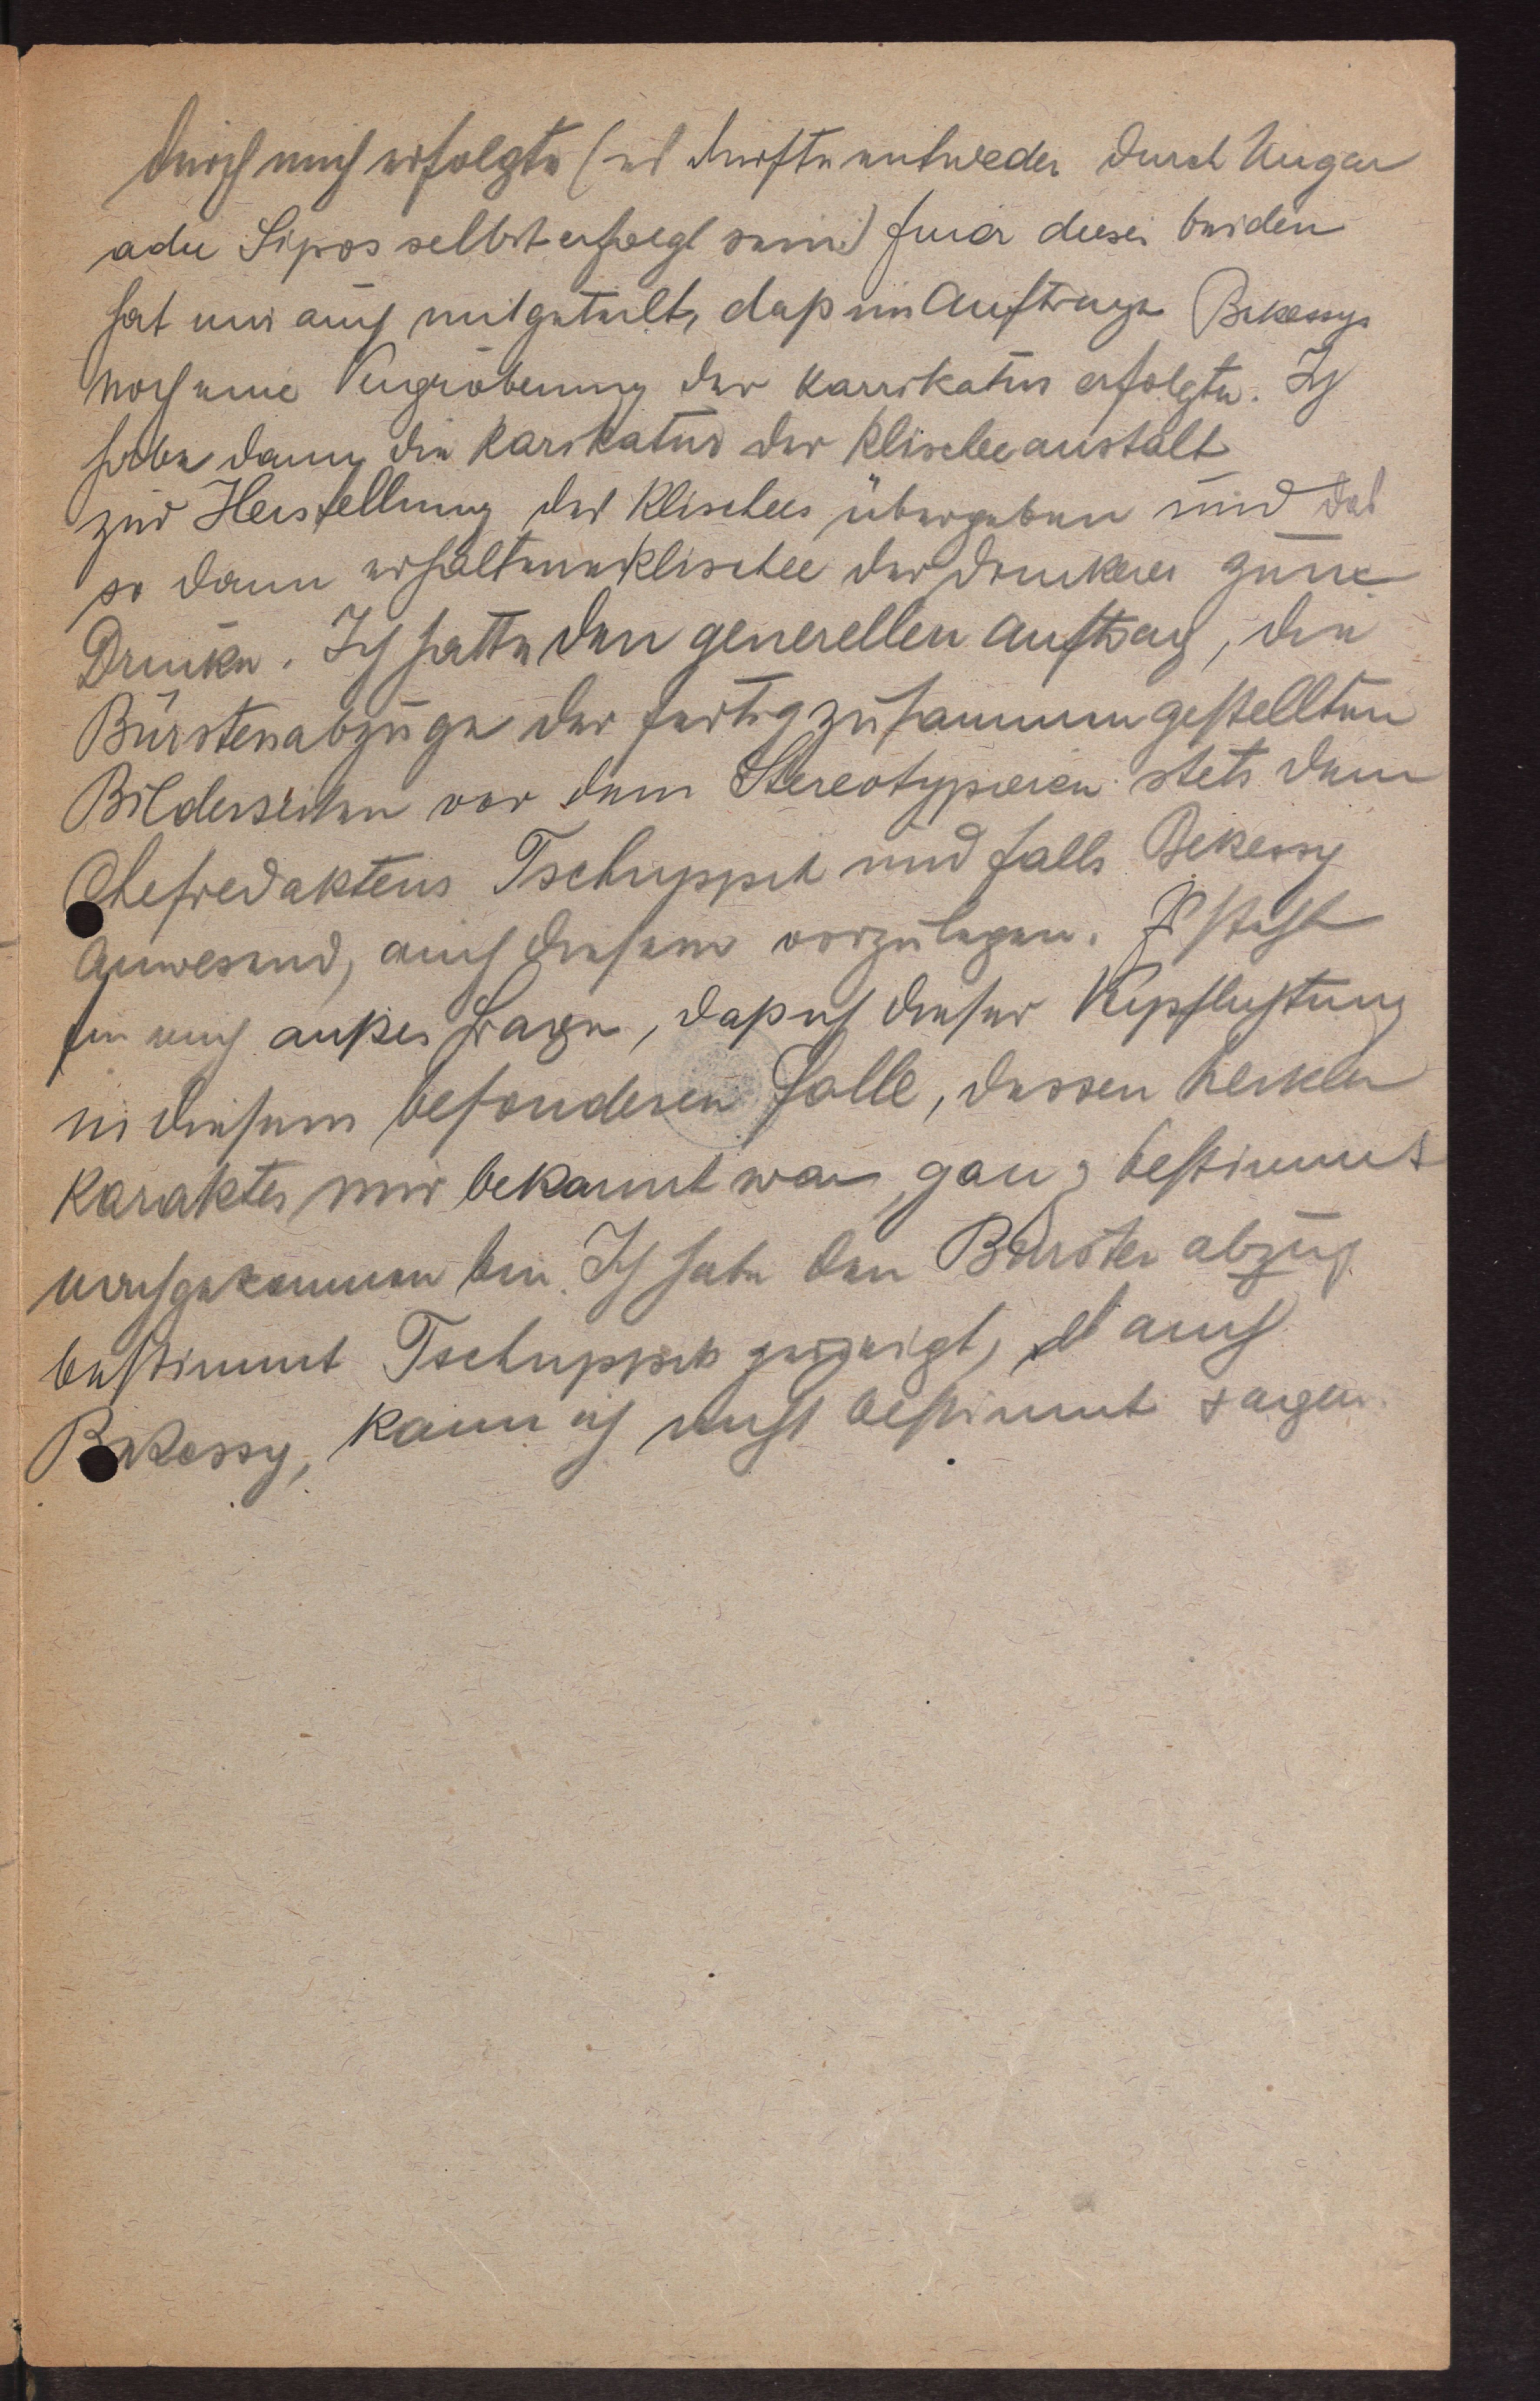 durch mich erfolgte (es dürfte entweder durch Ungar
oder Sipos selbst erfolgt sein) Einer dieser beiden
hat mir auch mitgeteilt, daß im Auftrage Bekessys
noch eine Vergröberung der Karrikatur erfolgte. Ich
habe dann die Karikatur der Klischeeanstalt
zur Herstellung des Klischees übergeben und das
so dann erhaltene Klischee der Druckerei zum
Drucke. Ich hatte den generellen Auftrag, die
Bürstenabzüge der fertig zusammengestellten
Bilderseiten vor dem Stereotypieren stets dem
Chefredakteur Tschuppik und falls Bekessy
anwesend, auch diesem vorzulegen. Es steht
für mich außer Frage, daß ich dieser Verpflichtung
in diesem besonderen Falle, dessen heikler
Karakter mir bekannt war, ganz bestimmt
nachgekommen bin. Ich habe den Bürstenabzug
bestimmt Tschuppik gezeigt, ob auch
Bekessy, kann ich nicht bestimmt sagen.